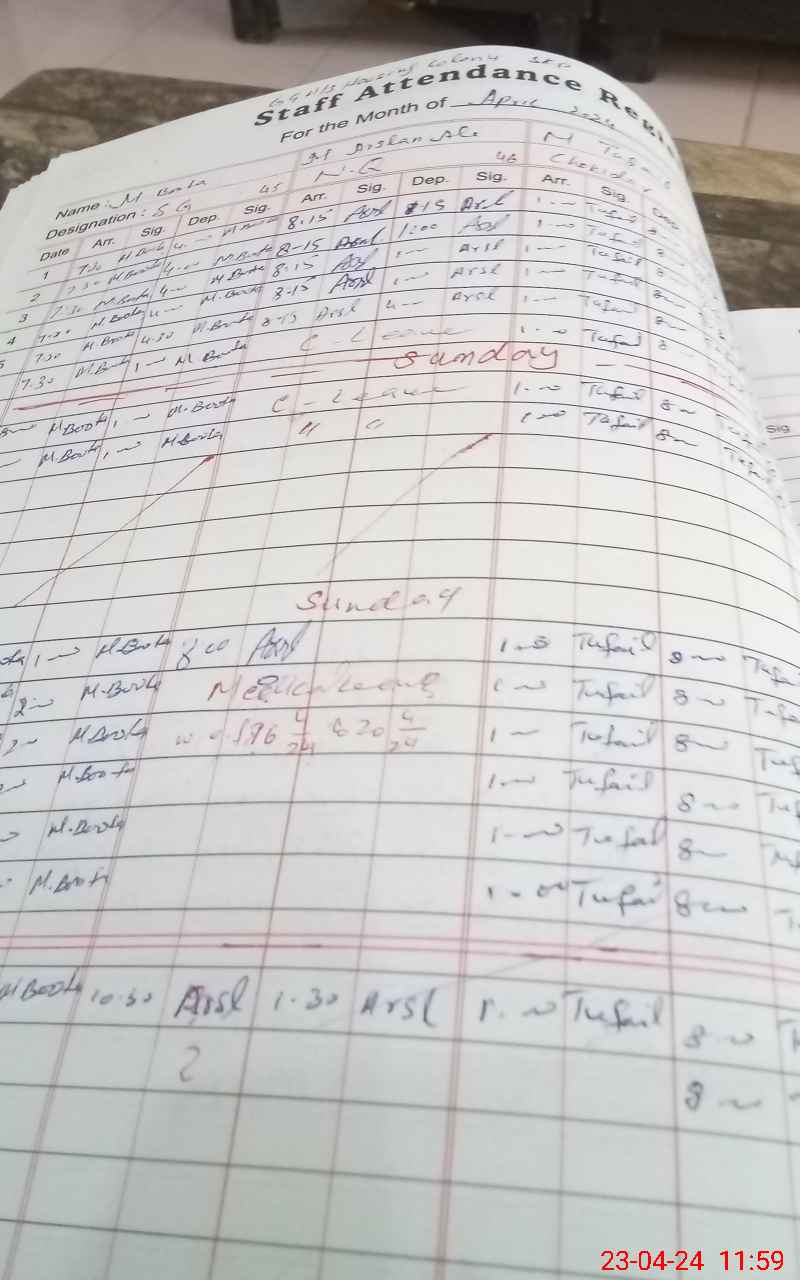 GGHS Housing Colony
Staff Attendance Regi
For the Month of April 2024
Name: M Boota M Arslan Ali M Tufail
Designation: SG 45 N.Q 46 Chokidar
Date Arr. Sig. Dep. Sig. Arr. Sig. Dep. Sig. Arr. Sig. Dep
1 7.30 M Boota 4.— M Boota 8.15 Arsl 15 Arsl 1.— Tufail 8
2 7.30 M Boota 4.00 M Boota 8-15 Arsl 1:00 Arsl 1.— Tufail 8
3 7.30 M Boota 4.— M Boota 8.15 Arsl 1— Arsl 1.— Tufail 8
4 7.30 M Boota 4— M Boota 8.15 Arsl 1— Arsl 1— Tufail 8—
5 7.30 M Boota 4.30 M Boota 8-15 Arsl 4— Arsl 1— Tufail 8—
7.30 M Boota 1— M Boota C-Leave 1.— Tufail 8—
Sunday
M Boota 1.— M.Boota C-Leave 1.— Tufail 8— Tufa
— M.Boota 1— M.Boota " " 1.— Tufail 8— Tufail
Sunday
ota 1— M.Boota 8 00 Arsl 1.— Tufail 8— Tufai
2— M.Boota Medical Leave 1— Tufail 8— Tufa
2— M.Boota w.e.f 16 4/24 to 20 4/24 1— Tufail 8— Tuf
— M.Boota 1.— Tufail 8— Tuf
— M.Boota 1.— Tufail 8—
M.Boota 1.— Tufail 8—
M Boota 10.30 Arsl 1.30 Arsl 1.— Tufail 8— T
8—
Sig
23-04-24 11:59